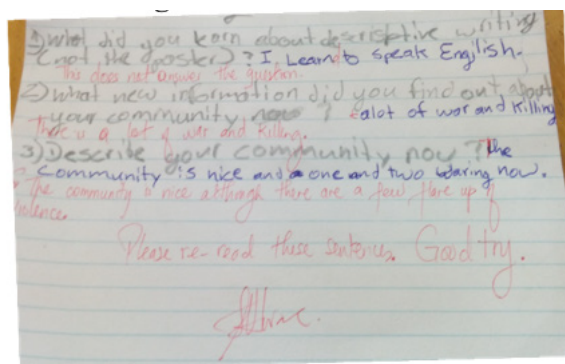 1) What did you learn about descriptive writing
(not the poster)? I Learn to speak English.
This does not answer the question.
2) What new information did you find out about
your community now? alot of war and Killing
There is a lot of war and Killing.
3) Describe your community now? The
Community is nice and a one and two waring now.
The community is nice although there are a few flare up of
violence.
Please re-read these sentences. Good try.